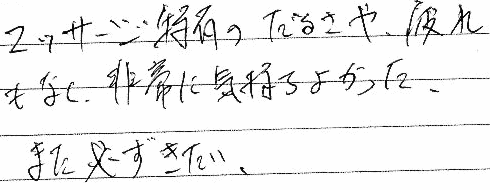 マッサージ特有の だるさや、疲れ
もなく、非常に気持ちよかった、
また必ずきたい、